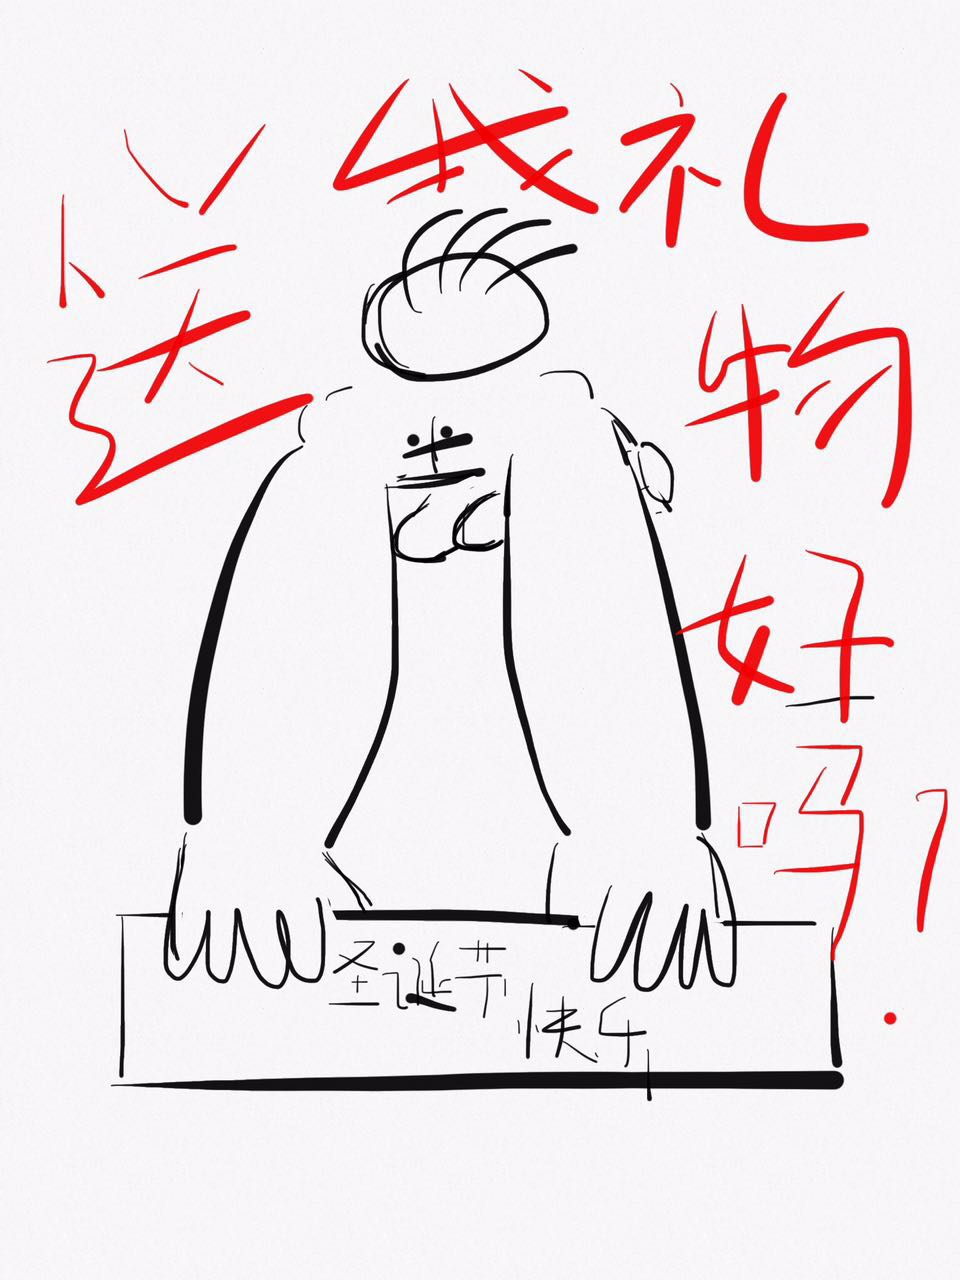 送我礼物好吗?
圣诞节
快乐